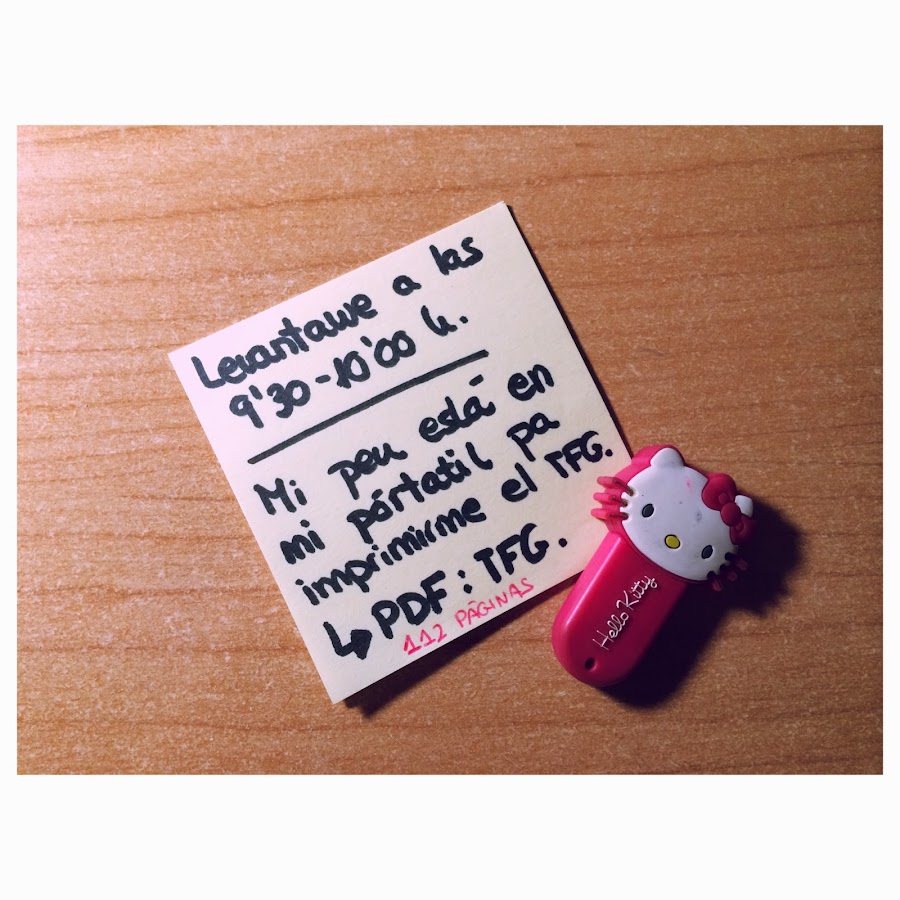 Levantame a las
9'30-10'00 h.
Mi peu está en
mi pórtatil pa
imprimirme el TFG.
↳ PDF: TFG.
112 PÁGINAS
Hello Kitty